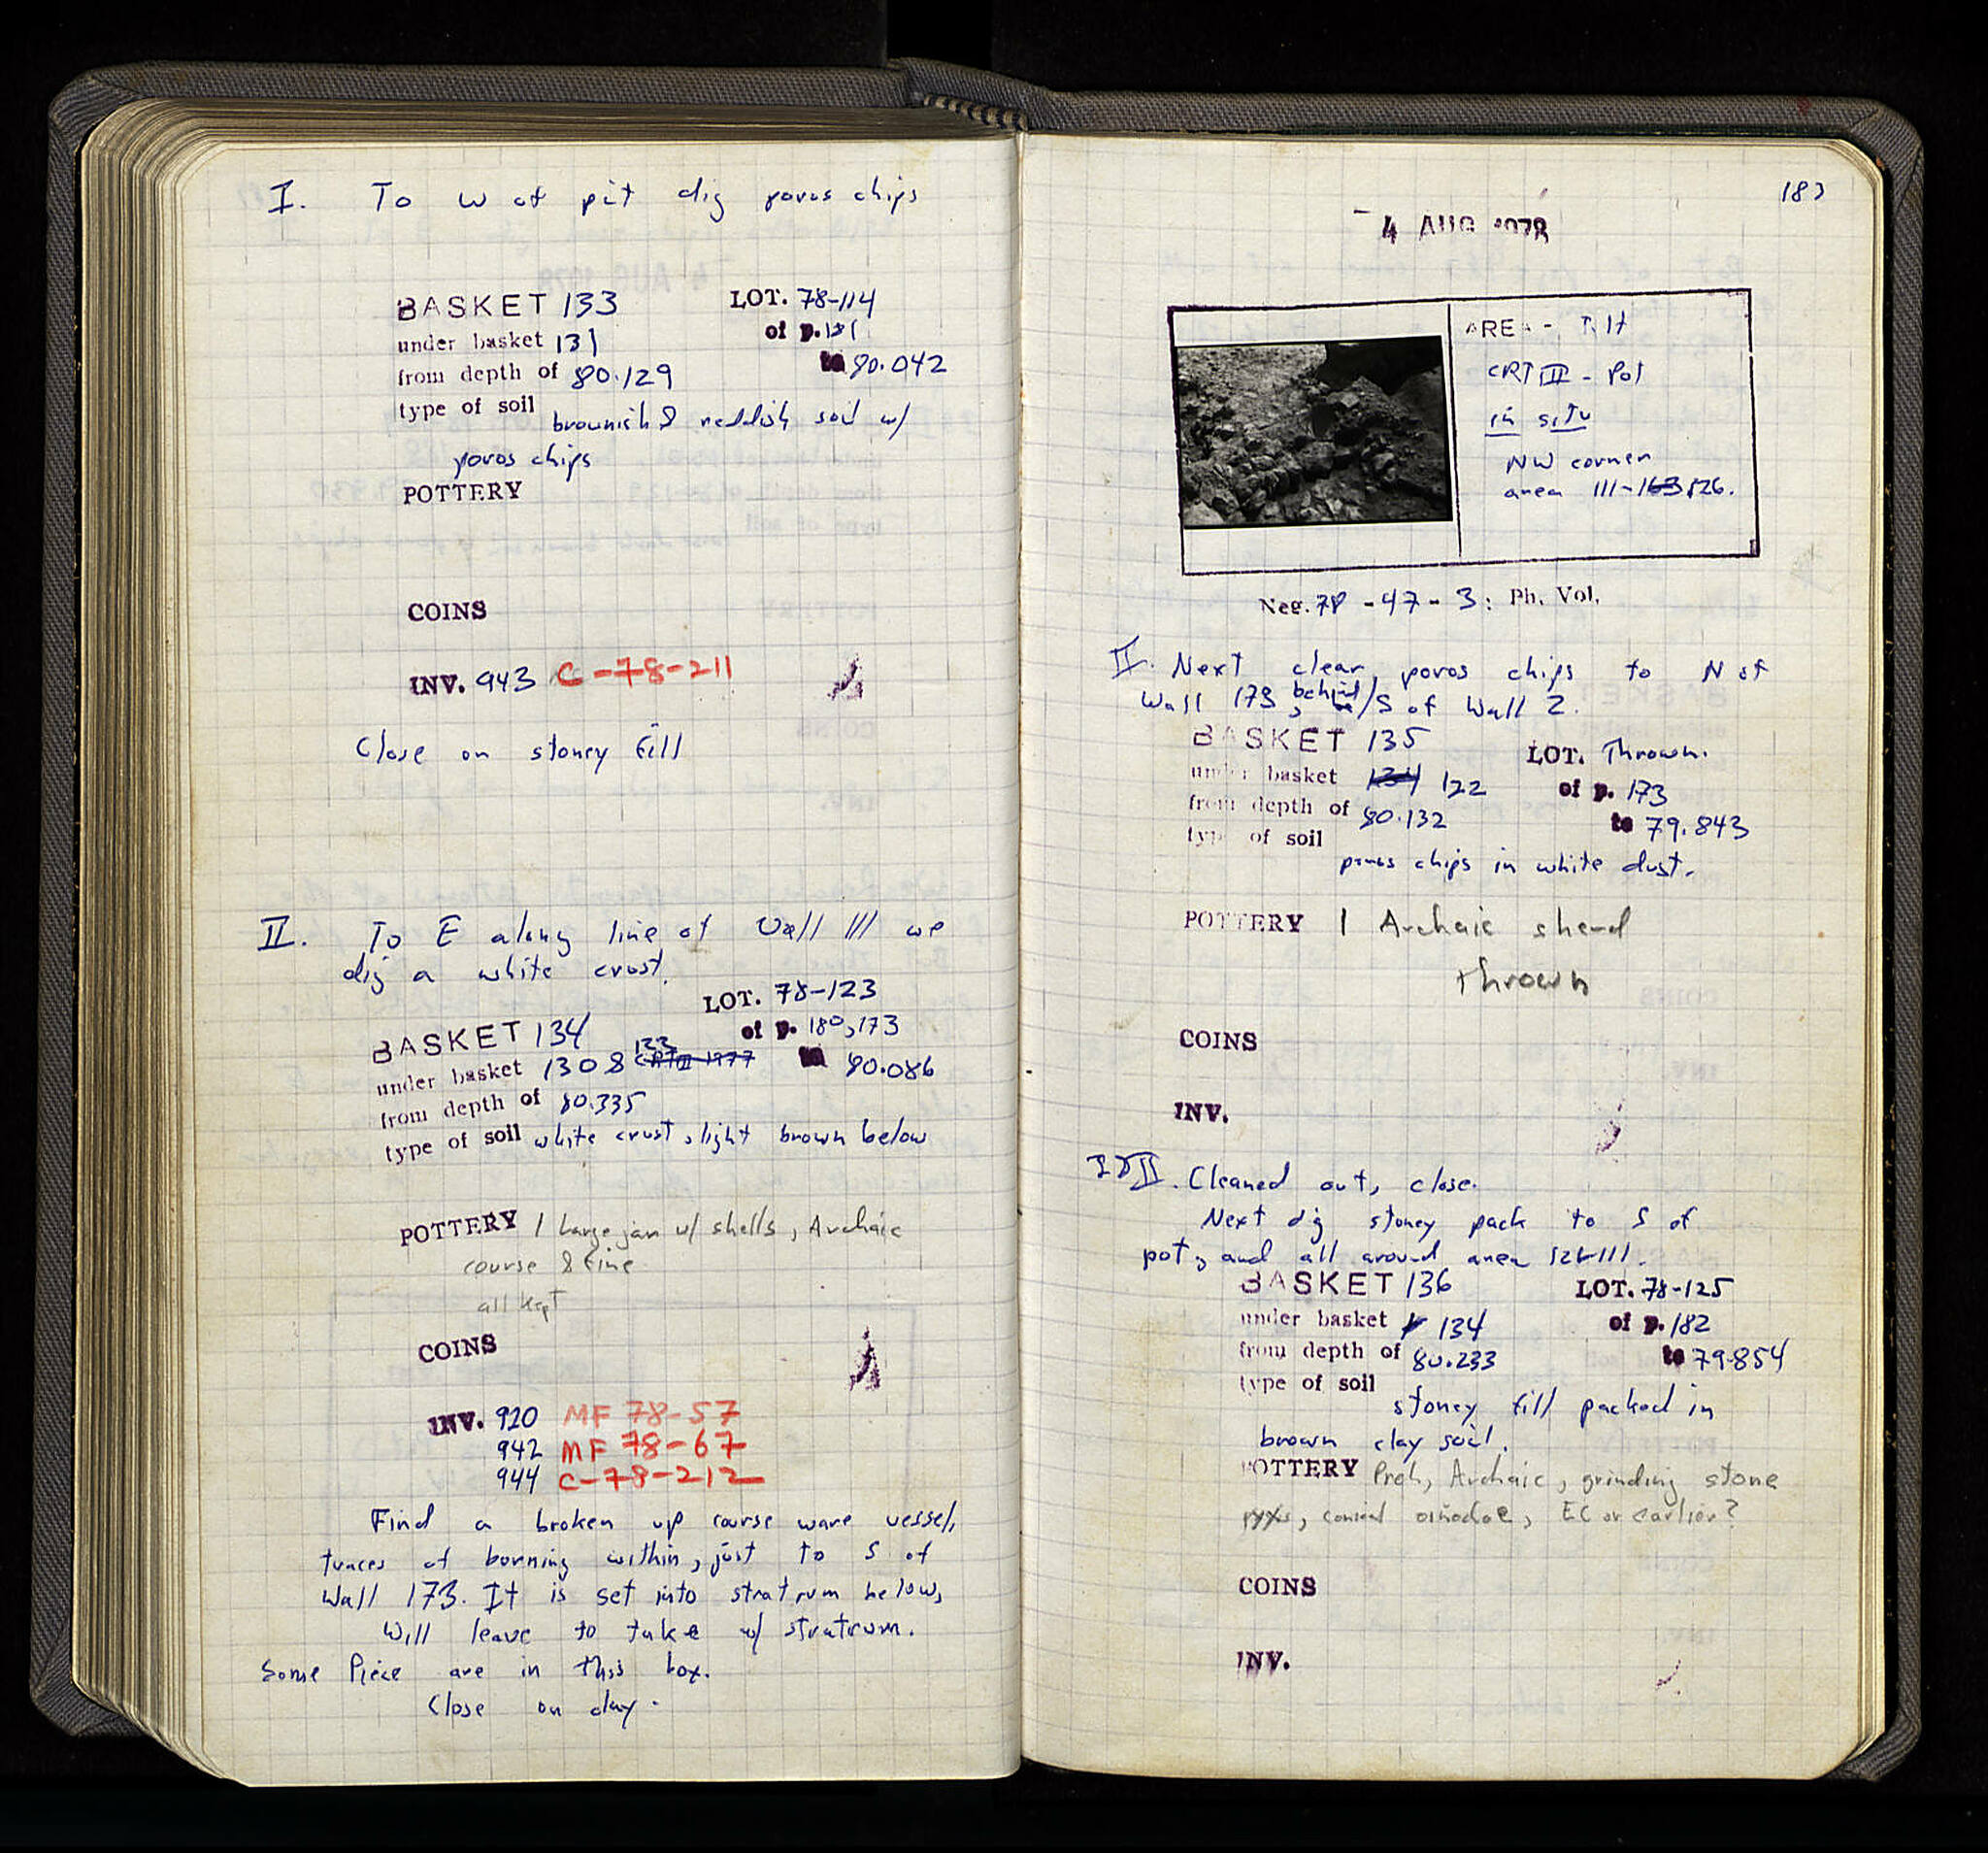 I. To W of pit dig poros chips
BASKET 133 LOT. 78-114
under basket 131 of p. 181
from depth of 80.129 to 80.042
type of soil brownish & reddish soil w/
poros chips
POTTERY
COINS
INV. 943 C-78-211
Close on stoney fill
II. To E along line of Wall 111 we
dig a white crust.
LOT. 78-123
BASKET 134 of p. 180, 173
under basket 130 & 133 to 80.086
from depth of 80.335
type of soil white crust, light brown below
POTTERY 1 Large jar w/ shells, Archaic
course & fine
all kept
COINS
INV. 920 MF 78-57
942 MF 78-67
944 C-78-212
Find a broken up course ware vessel,
traces of burning within, just to S of
Wall 173. It is set into stratrum below,
Will leave to take w/ stratrum.
Some Piece are in this box.
Close on clay.
183
4 AUG 1978
AREA -
CRT III - Pot
in situ
NW corner
area 111-163 126.
Neg. 78 - 47 - 3: Ph. Vol.
II. Next clear poros chips to N of
Wall 173, behind/S of Wall 2.
BASKET 135 LOT. Thrown.
under basket 134 122 of p. 173
from depth of 80.132 to 79.843
type of soil
poros chips in white dust.
POTTERY 1 Archaic sherd
thrown
COINS
INV.
I & II. Cleaned out, close.
Next dig stoney pack to S of
pot, and all around area 126-111.
BASKET 136 LOT. 78-125
under basket 134 of p. 182
from depth of 80.233 to 79.854
type of soil
stoney fill packed in
brown clay soil.
POTTERY Preh, Archaic, grinding stone
pyxis, conical oinochoe, EC or earlier?
COINS
INV.